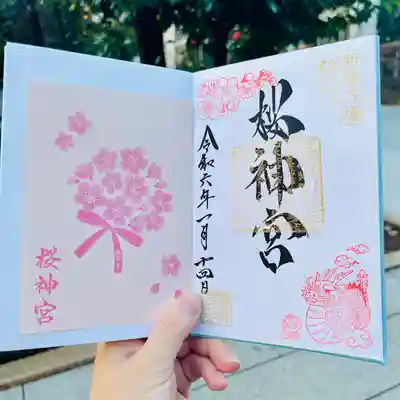 桜神宮
令和六年一月十四日
桜神宮